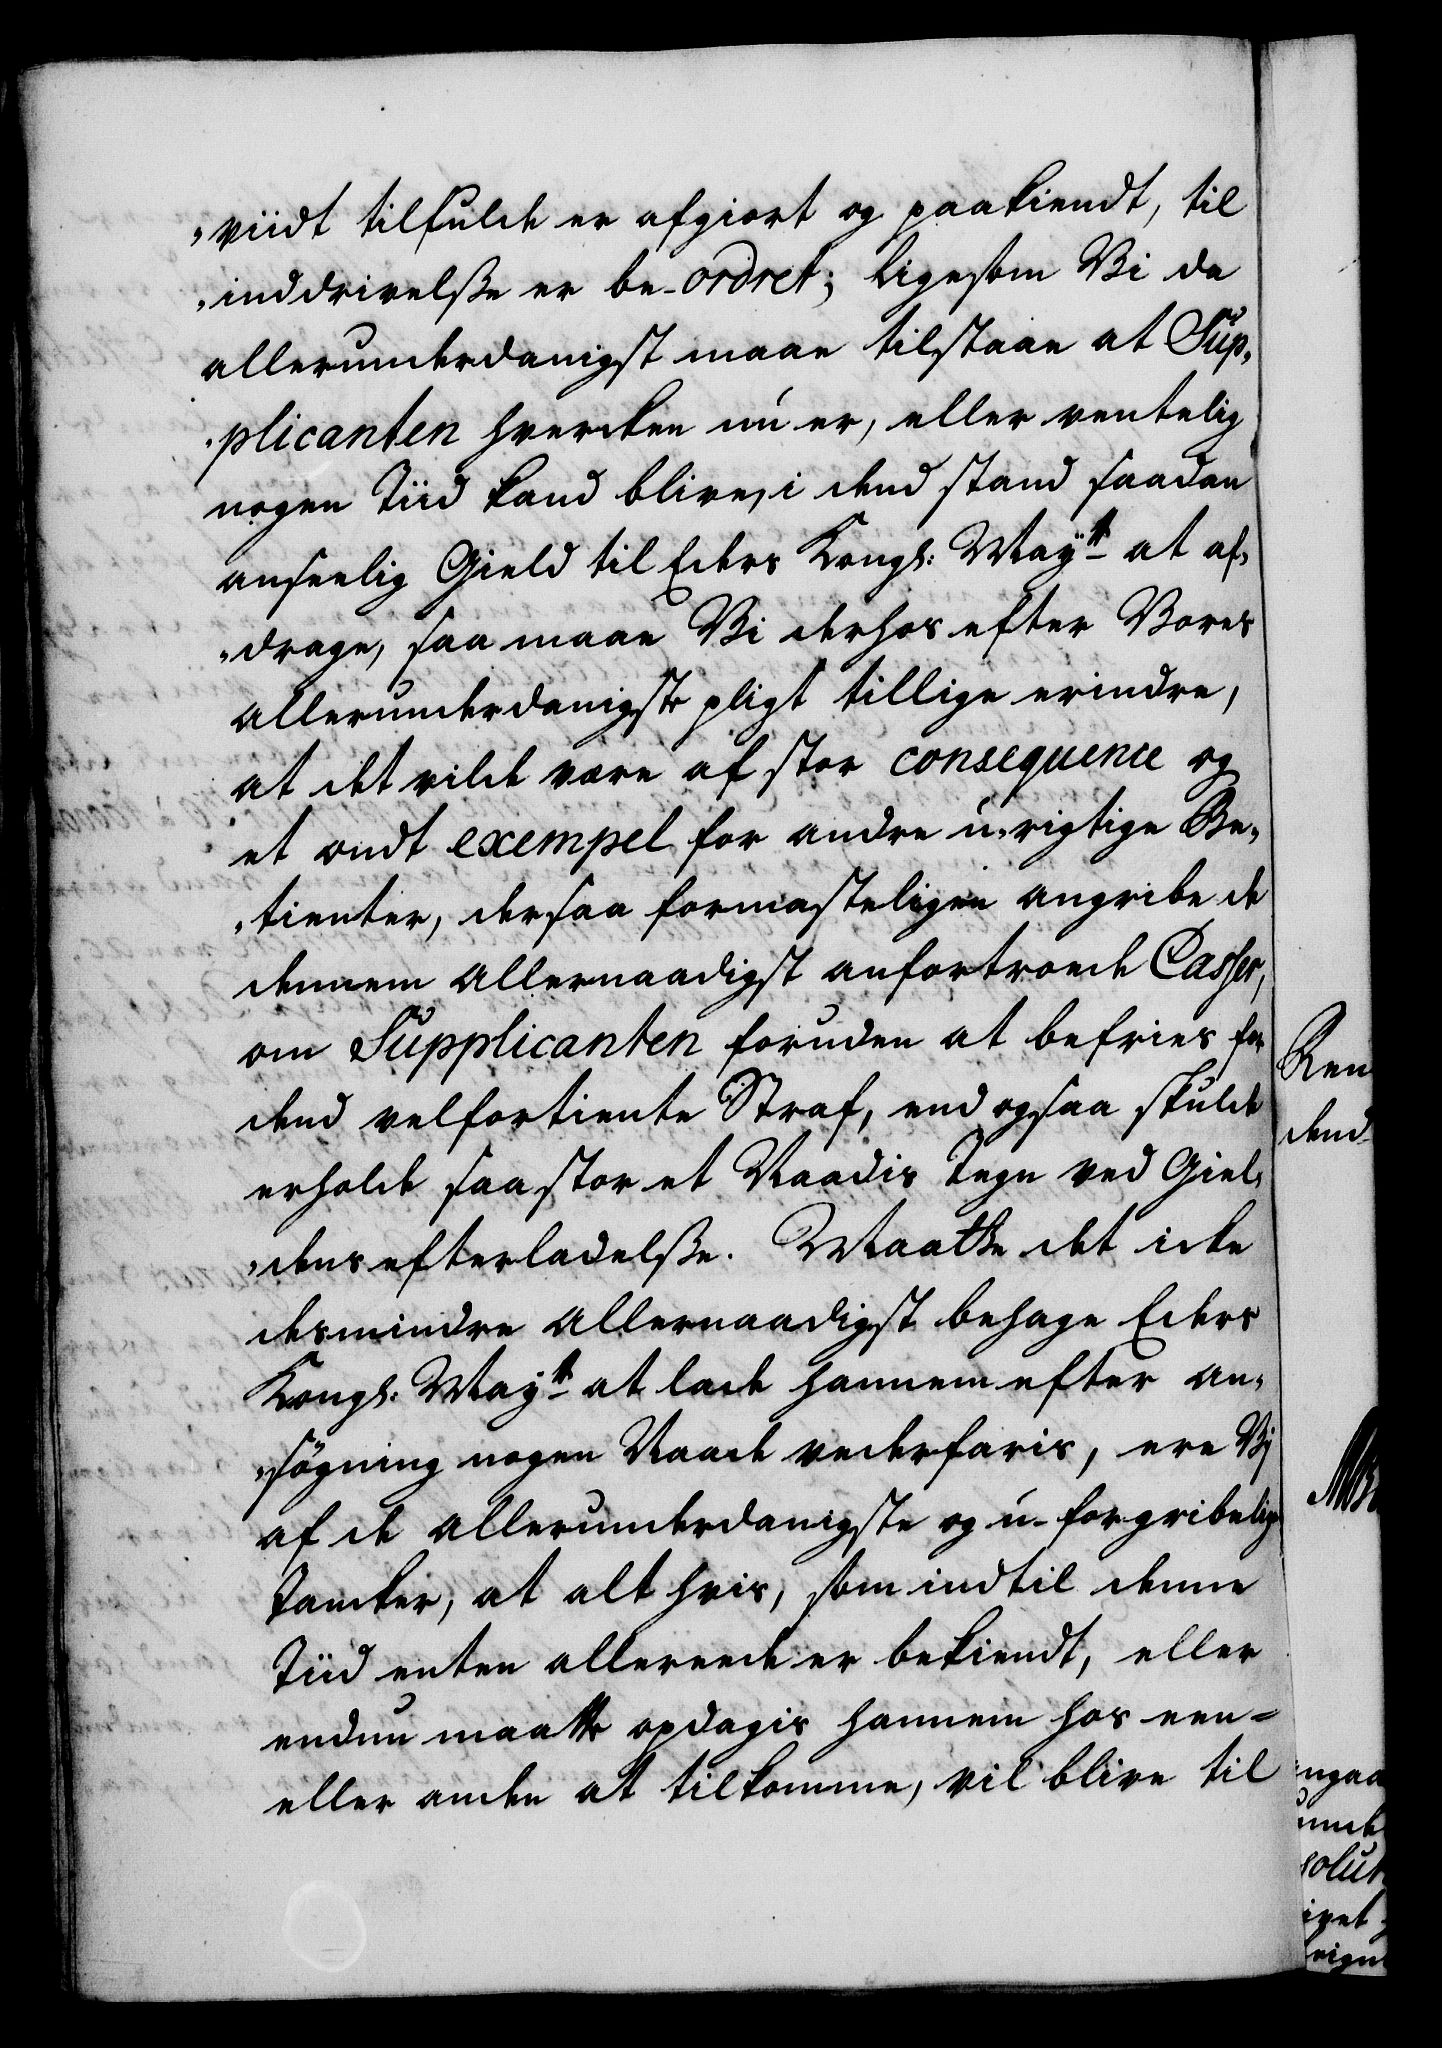 „viidt tilfulde er afgiort og paakiendt, til
„inddrivelsse er be-ordret; ligesom Vi da
allerunderdanigst maae tilstaae at Sup„
„plicanten hvercken nu er, eller ventelig
nogen Tiid kand blive, i dend stand saadan
anseelig Gield til Eders Kongl: Mayᵗᵗ at af„
„drage, saa maae Vi derhos efter Vores
allerunderdanigste pligt tillige erindre,
at det vilde være af stor consequence og
et ondt exempel for andre u-rigtige Be„
„tienter, der saa formasteligen angribe de
dennem allernaadigst anfortroede Casser,
om Supplicanten foruden at befries for
dend velfortiente Straf, end ogsaa skulde
erholde saa stor et Naadis Tegn ved Giel„
„dens efterladelsse. Maatte det icke
desmindre allernaadigst behage Eders
Kongl: Mayᵗᵗ at lade hannem efter an„
„søgning nogen Naade vederfaris, ere Vj
af de allerunderdanigste og u-forgribelige
Tancker, at alt hvis, som indtil denne
Tiid enten allereede er bekiendt, eller
endnu maatte opdagis hannem hos een-
eller anden at tilkomme, vil blive til
Ren
dend
ngaa
solut